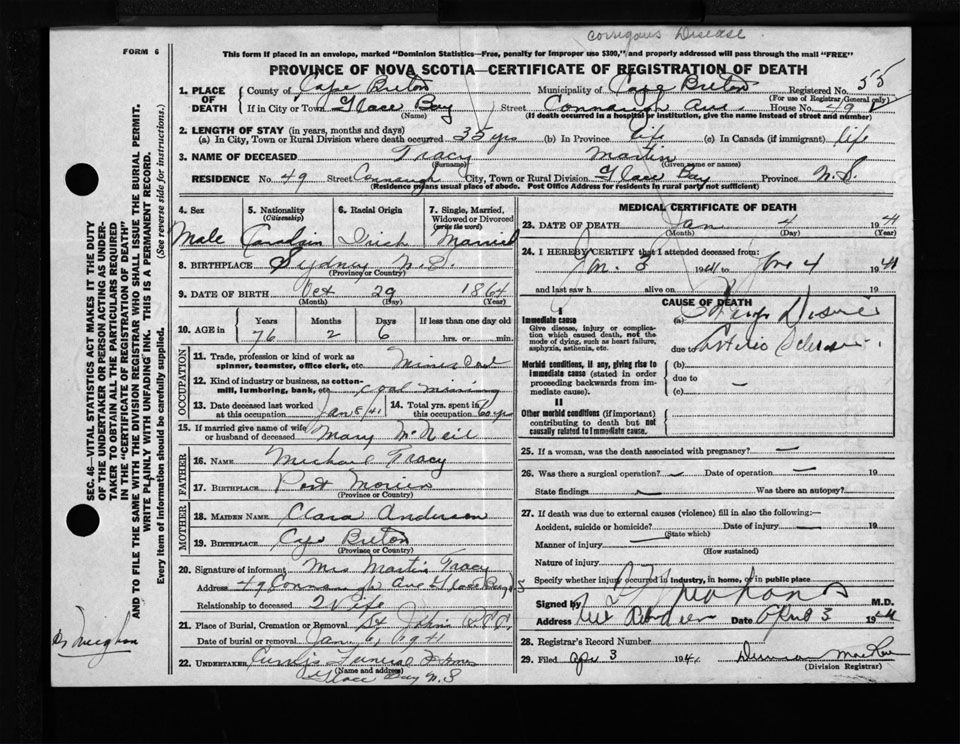 Corrigans Disease
FORM 6
This form if placed in an envelope, marked "Dominion Statistics—Free, penalty for improper use $300," and properly addressed will pass through the mail "FREE"
PROVINCE OF NOVA SCOTIA—CERTIFICATE OF REGISTRATION OF DEATH
1. PLACE OF DEATH County of Cape Breton Municipality of Cape Breton Registered No. 55
(For use of Registrar General only)
If in City or Town Glace Bay Street Connaugh Ave. House No. 49
(Name) (If death occurred in a hospital or institution, give the name instead of street and number)
2. LENGTH OF STAY (in years, months and days)
(a) In City, Town or Rural Division where death occurred 35 yrs (b) In Province life (c) In Canada (if immigrant) life
3. NAME OF DECEASED Tracy Martin
(Surname) (Given name or names)
RESIDENCE No. 49 Street Connaugh City, Town or Rural Division Glace Bay Province N.S.
(Residence means usual place of abode. Post Office Address for residents in rural parts not sufficient)
4. Sex 5. Nationality (Citizenship) 6. Racial Origin 7. Single, Married, Widowed or Divorced (write the word)
Male Canadian Irish Married
8. BIRTHPLACE Sydney N.S.
(Province or Country)
9. DATE OF BIRTH Oct 29 1864
(Month) (Day) (Year)
10. AGE in Years Months Days If less than one day old
76 2 6 hrs. or min.
OCCUPATION
11. Trade, profession or kind of work as spinner, teamster, office clerk, etc.
12. Kind of industry or business, as cotton-mill, lumbering, bank, etc. Coal mining
13. Date deceased last worked at this occupation Jan
14. Total yrs. spent in this occupation 60 yrs
15. If married give name of wife or husband of deceased Mary McNeil
FATHER
16. NAME Michael Tracy
17. BIRTHPLACE Port Morien
(Province or Country)
MOTHER
18. MAIDEN NAME Clara Anderson
19. BIRTHPLACE Cape Breton
(Province or Country)
20. Signature of informant Mrs Martin Tracy
Address 49 Connaugh Ave Glace Bay N S
Relationship to deceased Wife
21. Place of Burial, Cremation or Removal St Johns
Date of burial or removal Jan 6, 1941
22. UNDERTAKER Curry's Funeral Home
(Name and address)
Glace Bay N. S
MEDICAL CERTIFICATE OF DEATH
23. DATE OF DEATH Jan 4 1941
(Month) (Day) (Year)
24. I HEREBY CERTIFY that I attended deceased from:
Jan. 3 1941 to Jan 4 1941
and last saw h alive on 194
CAUSE OF DEATH
I
Immediate cause
Give disease, injury or complication which caused death, not the mode of dying, such as heart failure, asphyxia, asthenia, etc.
(a) Disease
due to Arterio Sclerosis.
Morbid conditions, if any, giving rise to immediate cause (stated in order proceeding backwards from immediate cause).
(b)
due to —
(c)
II
Other morbid conditions (if important) contributing to death but not causally related to immediate cause.
25. If a woman, was the death associated with pregnancy? —
26. Was there a surgical operation? — Date of operation — 19
State findings Was there an autopsy?
27. If death was due to external causes (violence) fill in also the following:—
Accident, suicide or homicide? Date of injury — 19
(State which)
Manner of injury
(How sustained)
Nature of injury
Specify whether injury occurred in industry, in home, or in public place
Signed by M.D.
Address Date April 3 19
28. Registrar's Record Number
29. Filed Apr 3 1941 Duncan MacRae
(Division Registrar)
SEC. 46—VITAL STATISTICS ACT MAKES IT THE DUTY
OF THE UNDERTAKER OR PERSON ACTING AS UNDERTAKER TO OBTAIN ALL THE PARTICULARS REQUIRED
IN THE "CERTIFICATE OF REGISTRATION OF DEATH"
AND TO FILE THE SAME WITH THE DIVISION REGISTRAR WHO SHALL ISSUE THE BURIAL PERMIT.
WRITE PLAINLY WITH UNFADING INK. THIS IS A PERMANENT RECORD.
Every item of information should be carefully supplied. (See reverse side for instructions.)
Dr Meighan